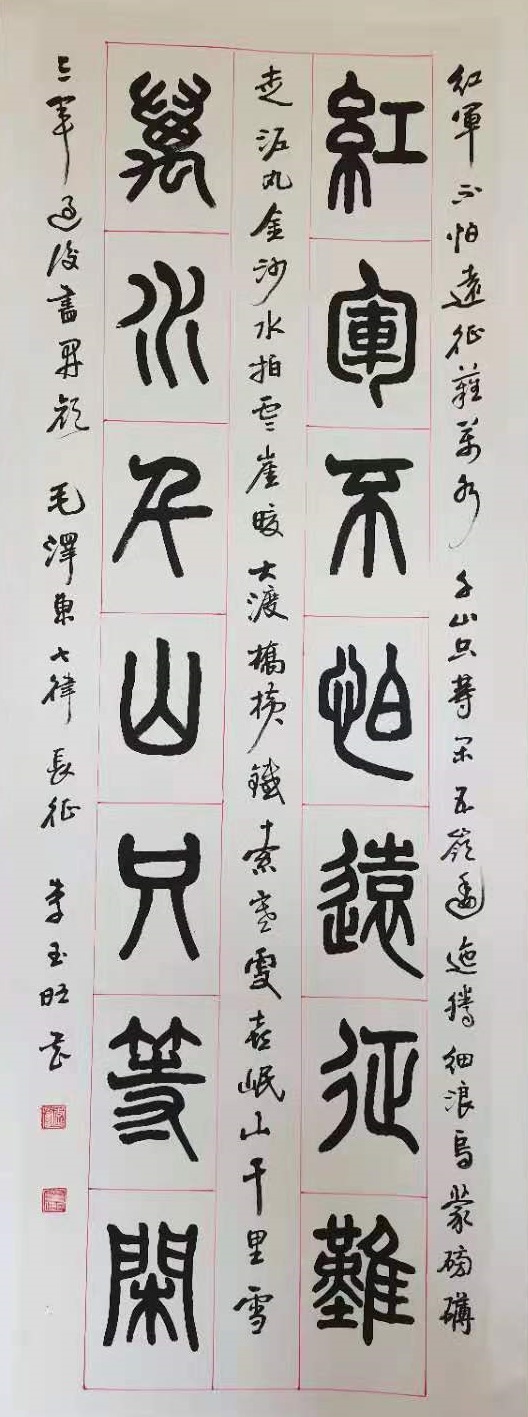 紅軍不怕遠征難萬水千山只等閑五嶺逶迤騰細浪烏蒙磅礴
紅軍不怕遠征難
走泥丸金沙水拍雲崖暖大渡橋橫鐵索寒更喜岷山千里雪
萬水千山只等閑
三軍過後盡開顏 毛澤東七律 長征 李玉旺書